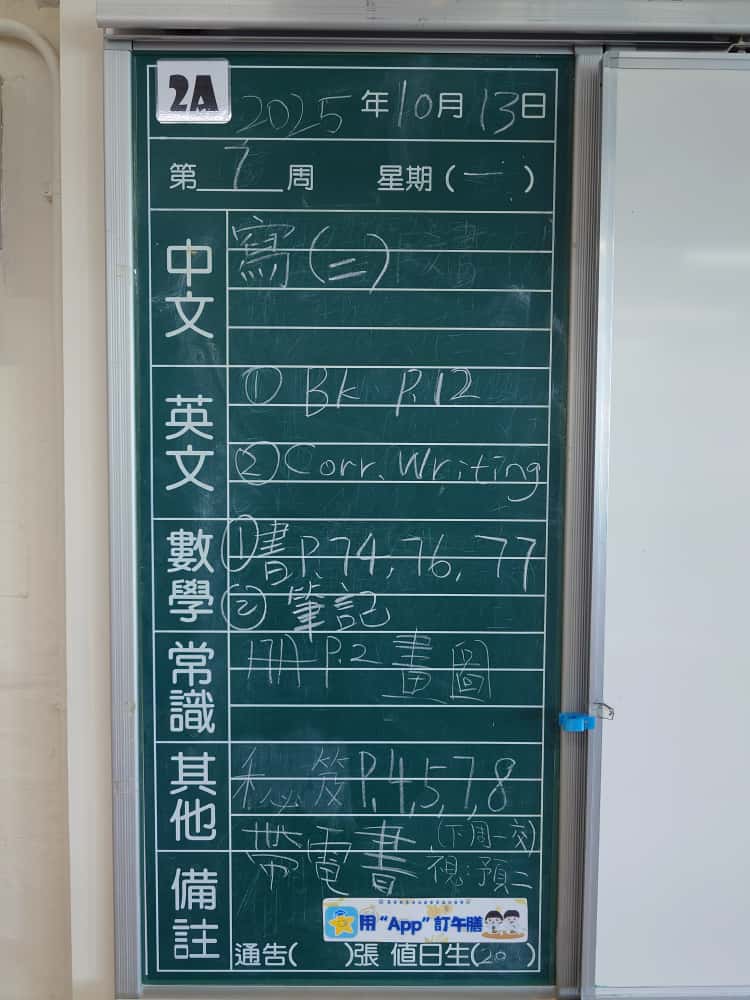 2A
2025年10月13日
第7周 星期(一)
中文
寫(二)
英文
① Bk P.12
② Corr. Writing
數學
①書P.74,76,77
② 筆記
常識
冊 P.2 畫圖
其他
秘笈P.4,5,7,8
(下周一交)
備註
帶電書 視:預二
用“App”訂午膳
通告( )張 值日生(20 )